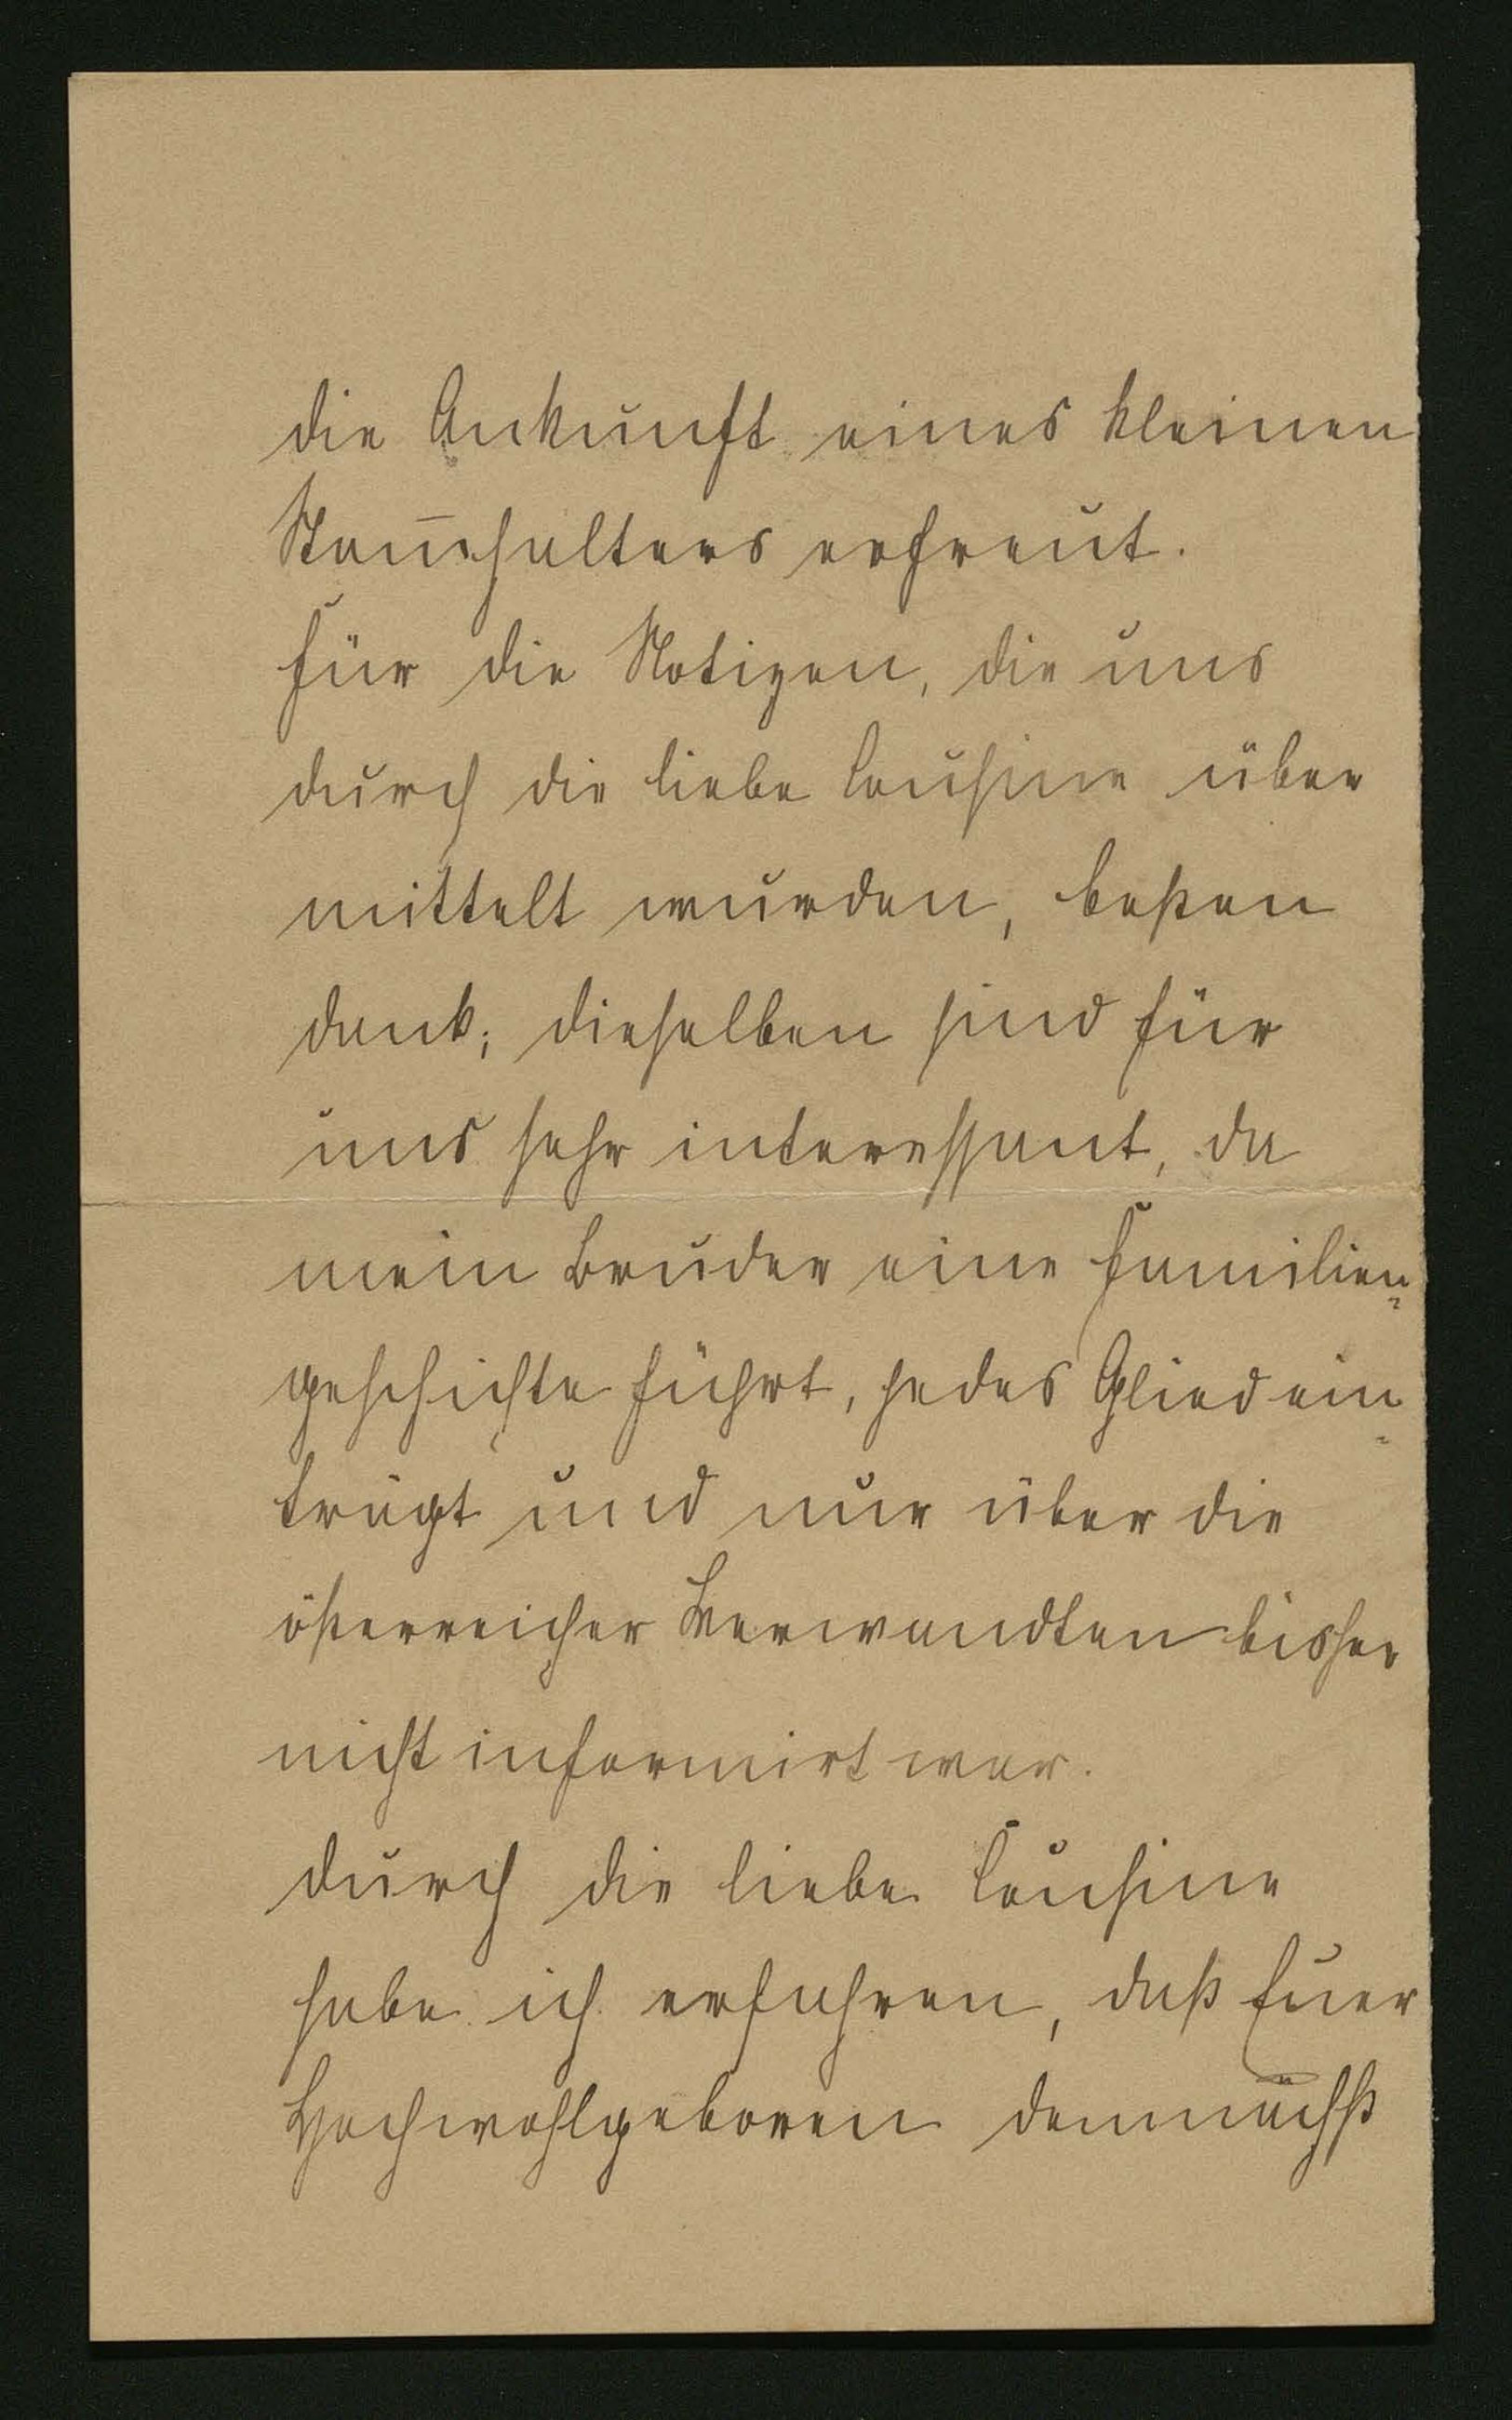 die Ankunft eines kleinen
Stam̅halters erfreut.
Für die Notizen, die uns
durch die liebe Cousine über
mittelt wurden, besten
Dank; dieselben sind für
uns sehr interessant, da
mein Bruder eine Familien-
geschichte führt, jedes Glied ein-
trägt und nur über die
österreicher Verwandten bisher
nicht informirt war.
Durch die liebe Cousine
habe ich erfahren, daß Euer
Hochwohlgeboren demnächst